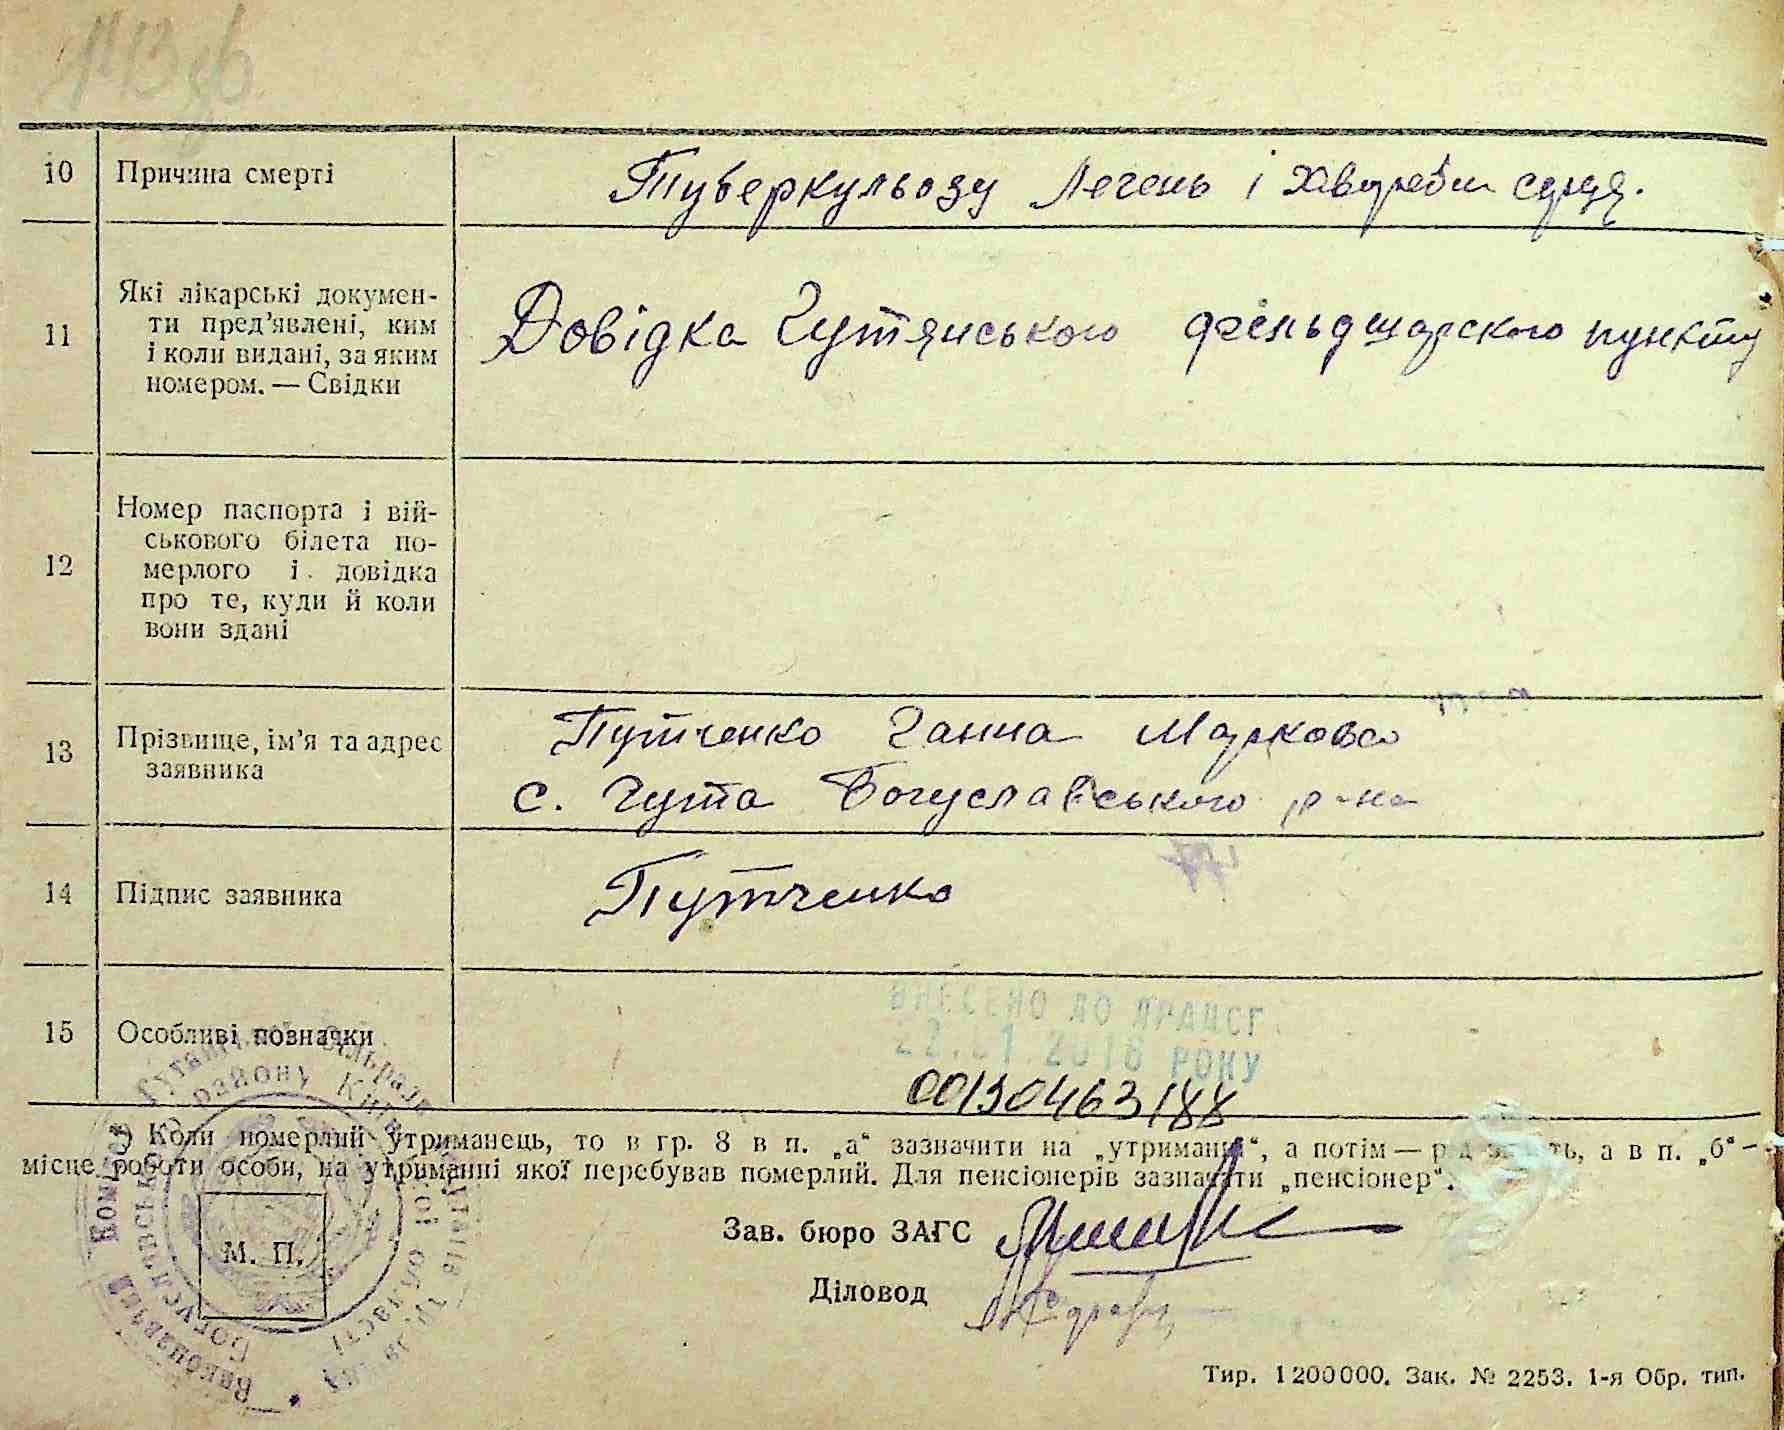 10 Причина смерті Туберкульозу легень і хвороби серця.
11 Які лікарські докумен-
ти пред'явлені, ким
і коли видані, за яким
номером. — Свідки
Довідка Гутянського фельдшарского пункту
12 Номер паспорта і вій-
ськового білета по-
мерлого і довідка
про те, куди й коли
вони здані
13 Прізвище, ім'я та адрес
заявника
Путченко Ганна Маркова
с. Гута Богуславського р-на
14 Підпис заявника Путченко
15 Особливі позначки
ВНЕСЕНО ДО ДРАЦСГ
22.01.2016 РОКУ
00130463188
*) Коли померлий утриманець, то в гр. 8 в п. „а“ зазначити на „утриманні“, а потім — а в п. „б“ —
місце роботи особи, на утриманні якої перебував померлий. Для пенсіонерів зазначити „пенсіонер“.
Зав. бюро ЗАГС
М. П.
Діловод
Тир. 1200000. Зак. № 2253. 1-я Обр. тип.